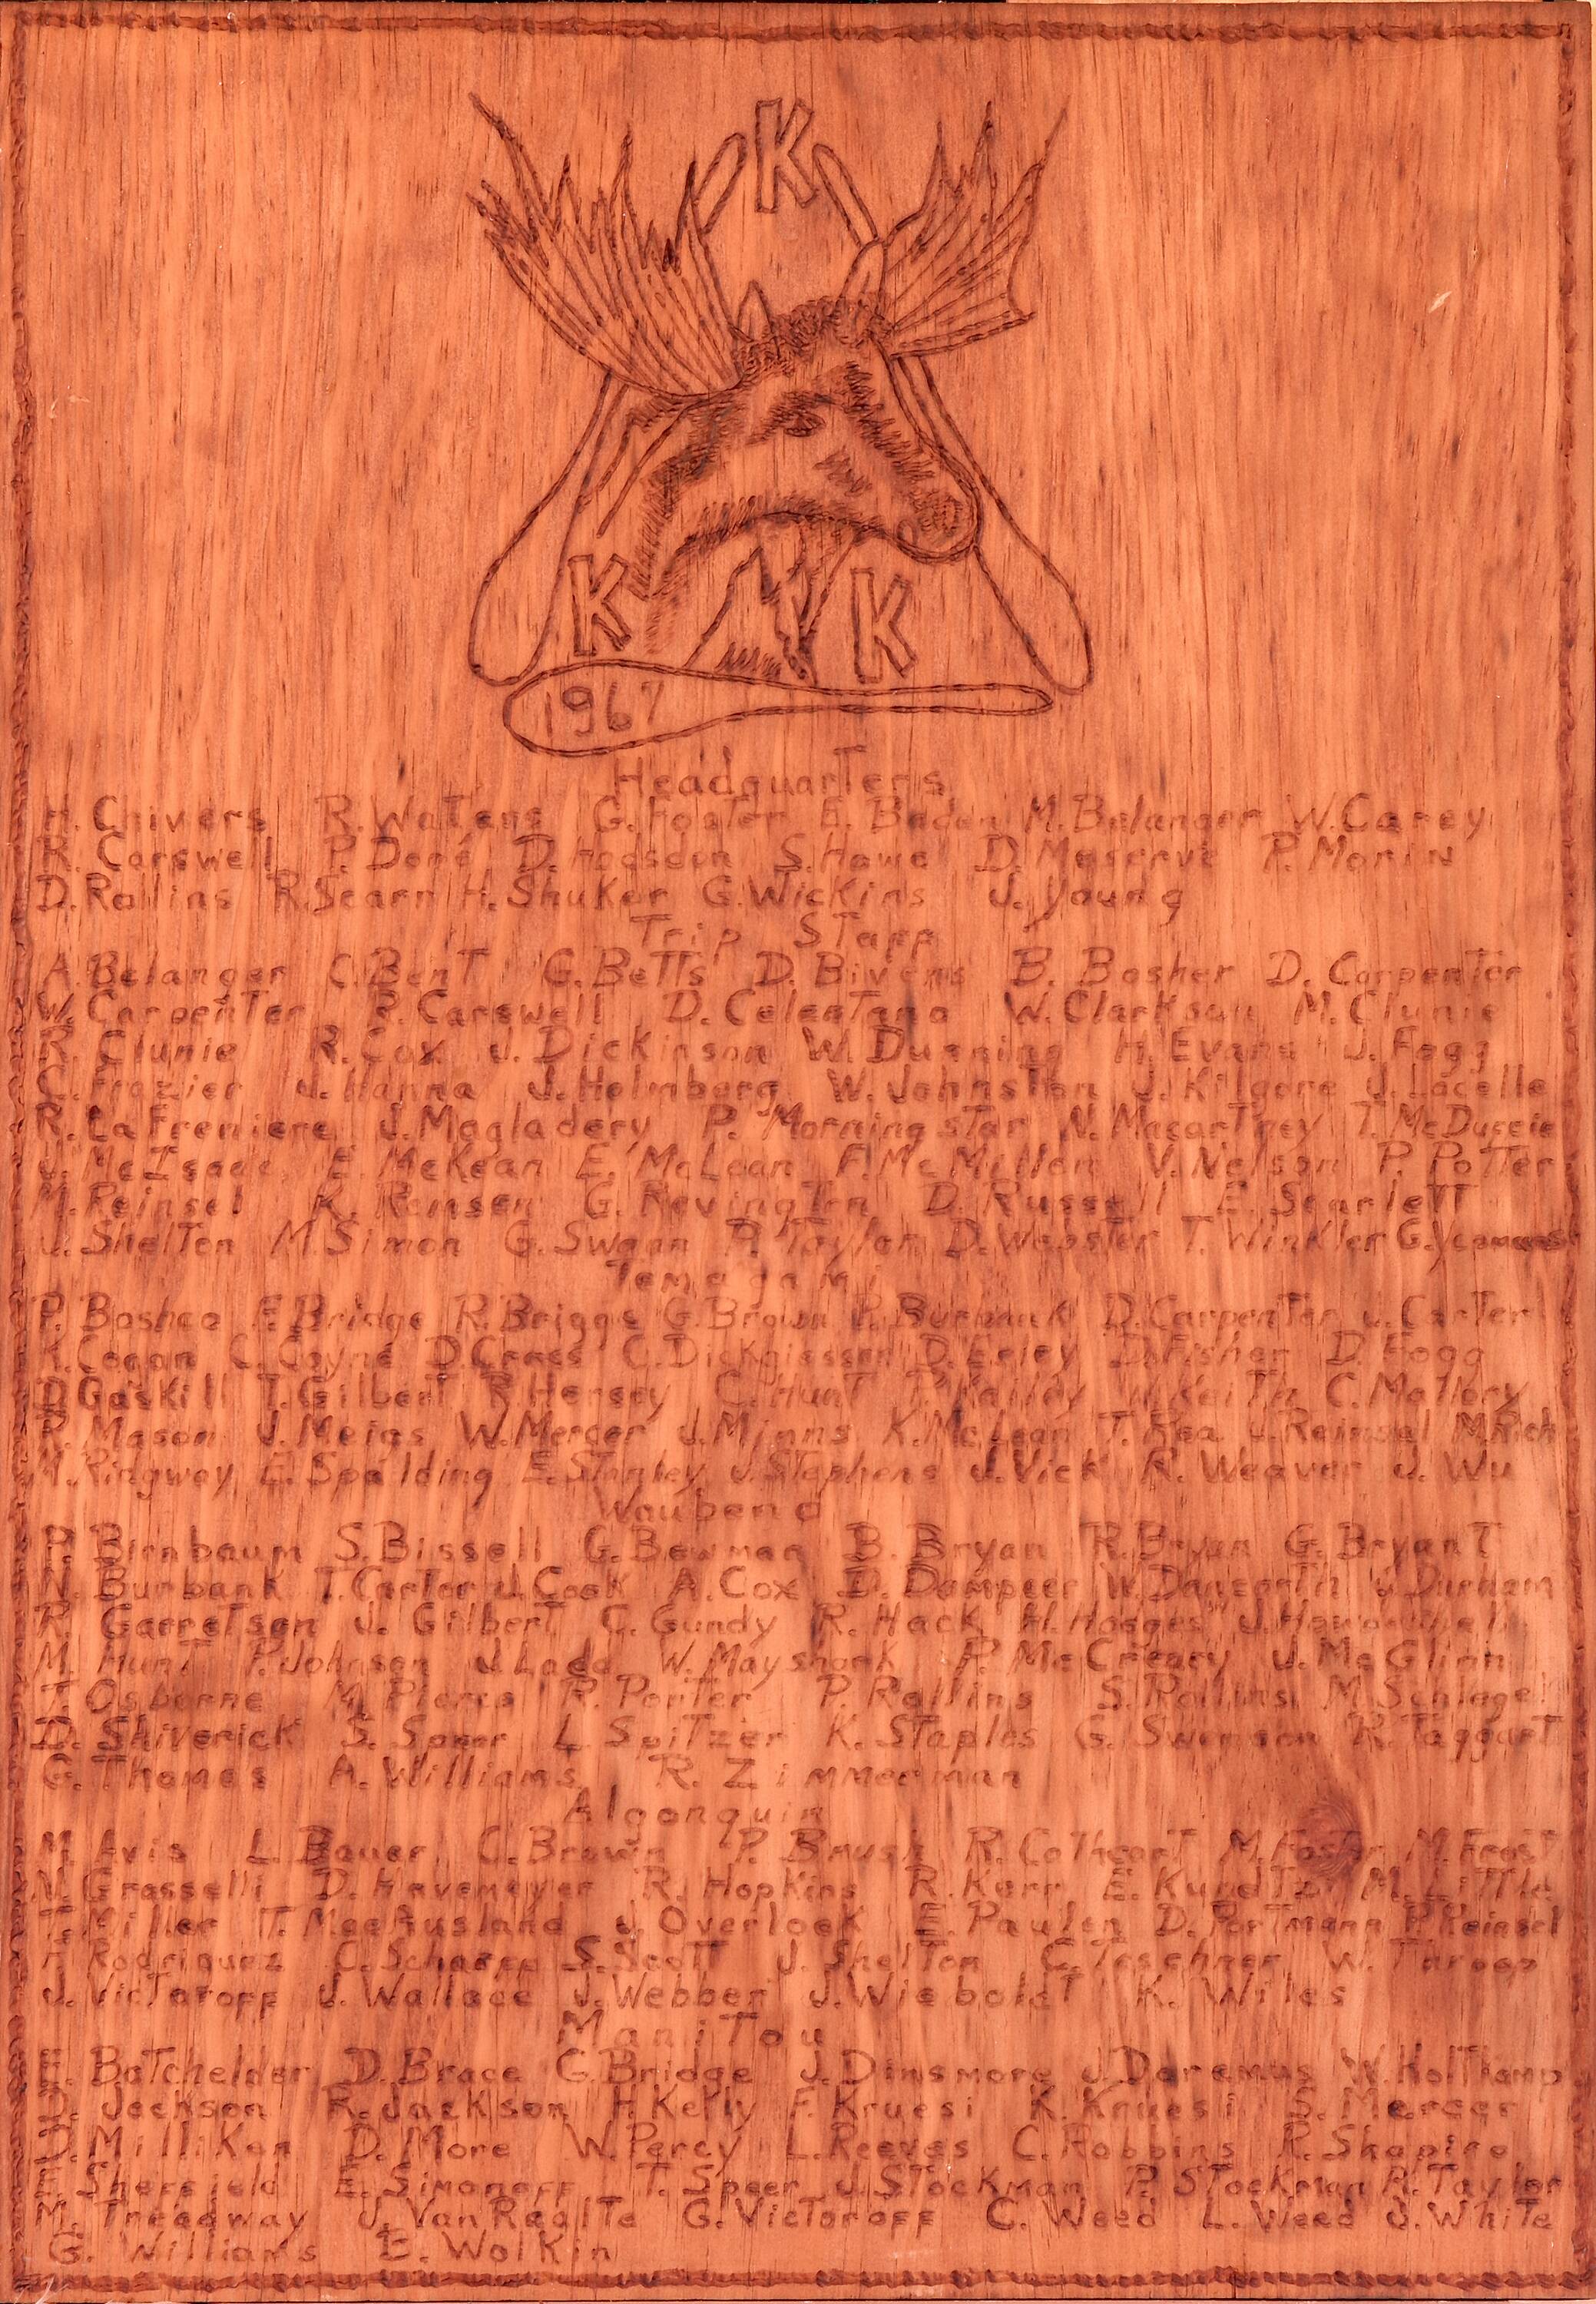 K
K K
1967
Headquarters
H. Chivers R. Watens G. Foster E. Baden M. Belanger W. Carey
R. Carswell P. Doré D. Hodsdon S. Howe D. Meserve R. Morin
D. Rollins R. Searn H. Shuker G. Wickins J. Young
Trip Staff
A. Belanger C. Bent G. Betts D. Bivens B. Bosher D. Carpenter
W. Carpenter R. Carswell D. Celentano W. Clarkson M. Clunie
R. Clunie R. Cox J. Dickinson W. Dunning H. Evans J. Fogg
C. Frazier J. Hanna J. Holmberg W. Johnston J. Kilgore J. Lacelle
R. LaFreniere J. Magladery P. Morningstar N. Macartney T. McDuffie
J. McIsaac E. McKean E. McLean F. McMillen V. Nelson P. Potter
M. Reinsel R. Remsen G. Revington D. Russell E. Scarlett
J. Shelton M. Simon G. Swaan P. Taylor D. Webster T. Winkler G. Yeomans
Temagami
P. Boshco F. Bridge R. Briggs G. Brown P. Burbank D. Carpenter J. Carter
Cogan C. Coyne D. Crass C. Dickgiesser D. Erley D. Fisher D. Fogg
D. Gaskill T. Gilbert R. Hersey C. Hunt Kailey Keith C. Mallory
R. Mason J. Meigs W. Mercer J. Mimms K. McLean T. Rea J. Reinsel M. Rich
M. Ridgway E. Spalding E. Stanley J. Stephens J. Vick R. Weaver J. Wu
Waubeno
P. Birnbaum S. Bissell G. Bowman B. Bryan R. Bryan G. Bryant
N. Burbank T. Carter J. Cook A. Cox D. Dampeer W. Danforth J. Durham
R. Garretson J. Gilbert C. Gundy R. Hack H. Hodges J.
M. Hunt P. Johnson J. Ladd W. Mayshark P. McCreary J. McGlinn
T. Osborne M. Pierce R. Porter P. Rollins S. Rollins M. Schlagel
D. Shiverick S. Speer L. Spitzer K. Staples G. Swenson R. Taggart
G. Thomas A. Williams R. Zimmerman
Algonquin
M. Avis L. Bauer C. Brown P. Brush R. Cathcart M. Foster M. Frost
N. Grasselli D. Havemeyer R. Hopkins R. Kerr E. Kundtz M. Little
T. Miller T. MacAusland J. Overlock E. Paulsn D. Portmann P. Reinsel
F. Rodriguez C. Scharff S. Scott J. Shelton C. Teschner W. Throop
J. Victoroff J. Wallace J. Webber J. Wieboldt K. Wiles
Manitou
E. Batchelder D. Brace G. Bridge J. Dinsmore J. Doremus W. Holtkamp
D. Jackson R. Jackson H. Kelly F. Kruesi K. Kruesi S. Mercer
D. Milliken D. More W. Percy L. Reeves C. Robbins R. Shapiro
E. Sheffield E. Simonoff T. Speer J. Stockman P. Stockman R. Taylor
M. Treadway J. Van Raalte G. Victoroff C. Weed L. Weed J. White
G. Williams E. Wolkin